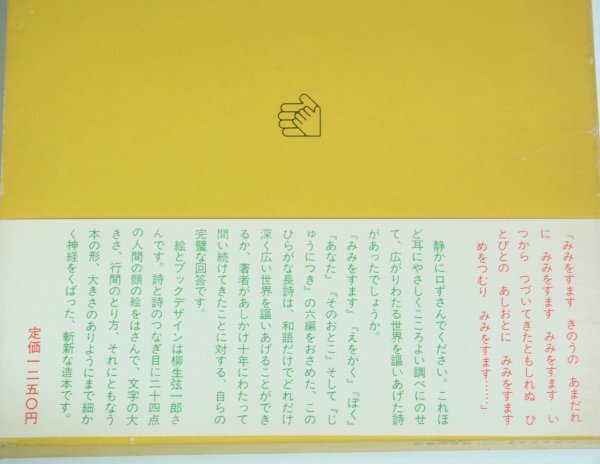 『みみをすます きのうの あまだれ
に みみをすます みみをすます い
つから つづいてきたともしれぬ ひ
とびとの あしおとに みみをすます
めをつむり みみをすます……』
静かに口ずさんでください。これほ
ど耳にやさしくこころよい調べにのせ
て、広がりわたる世界を謳いあげた詩
があったでしょうか。
『みみをすます』『えをかく』『ぼく』
『あなた』『そのおとこ』そして『じ
ゅうにつき』の六編をおさめた、この
ひらがな長詩は、和語だけでどれだけ
深く広い世界を謳いあげることができ
るか、著者があしかけ十年にわたって
問い続けてきたことに対する、自らの
完璧な回答です。
絵とブックデザインは柳生弦一郎さ
んです。詩と詩のつなぎ目に二十四点
の人間の顔の絵をはさんで、文字の大
きさ、行間のとり方、それにともなう
本の形、大きさのありようにまで細か
く神経をくばった、斬新な造本です。
定価一二五〇円